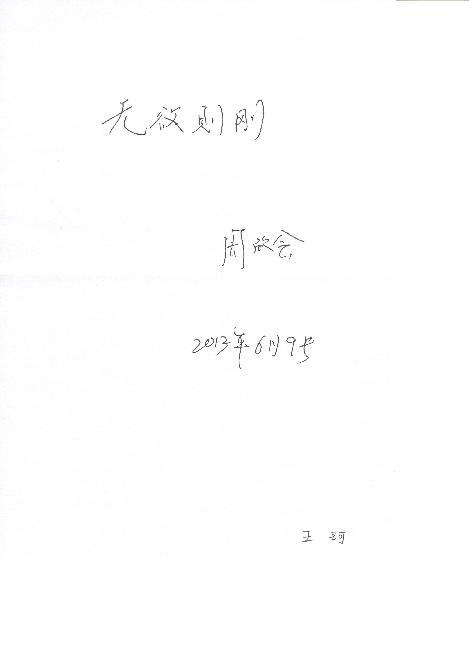 无欲则刚
2013年6月9号
王 珂